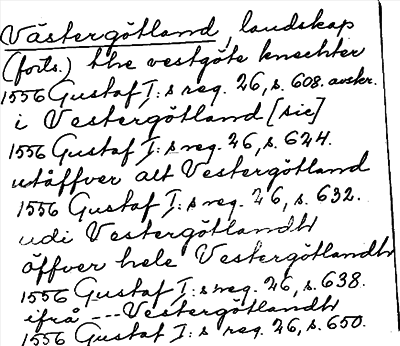 Västergötland, landskap
(forts.) the vestgöte knechter
1556 Gustaf I:s reg. 26, s. 608. avskr.
i Vestergötland [sic]
1556 Gustaf I:s reg. 26, s. 624.
utåffver alt Vestergötland
1556 Gustaf I:s reg. 26, s. 632.
udi Vestergötlandh
öffver hele Vestergötlandh
1556 Gustaf I:s reg. 26, s. 638.
ifrå --- Vestergötlandh
1556 Gustaf I:s reg. 26, s. 650.